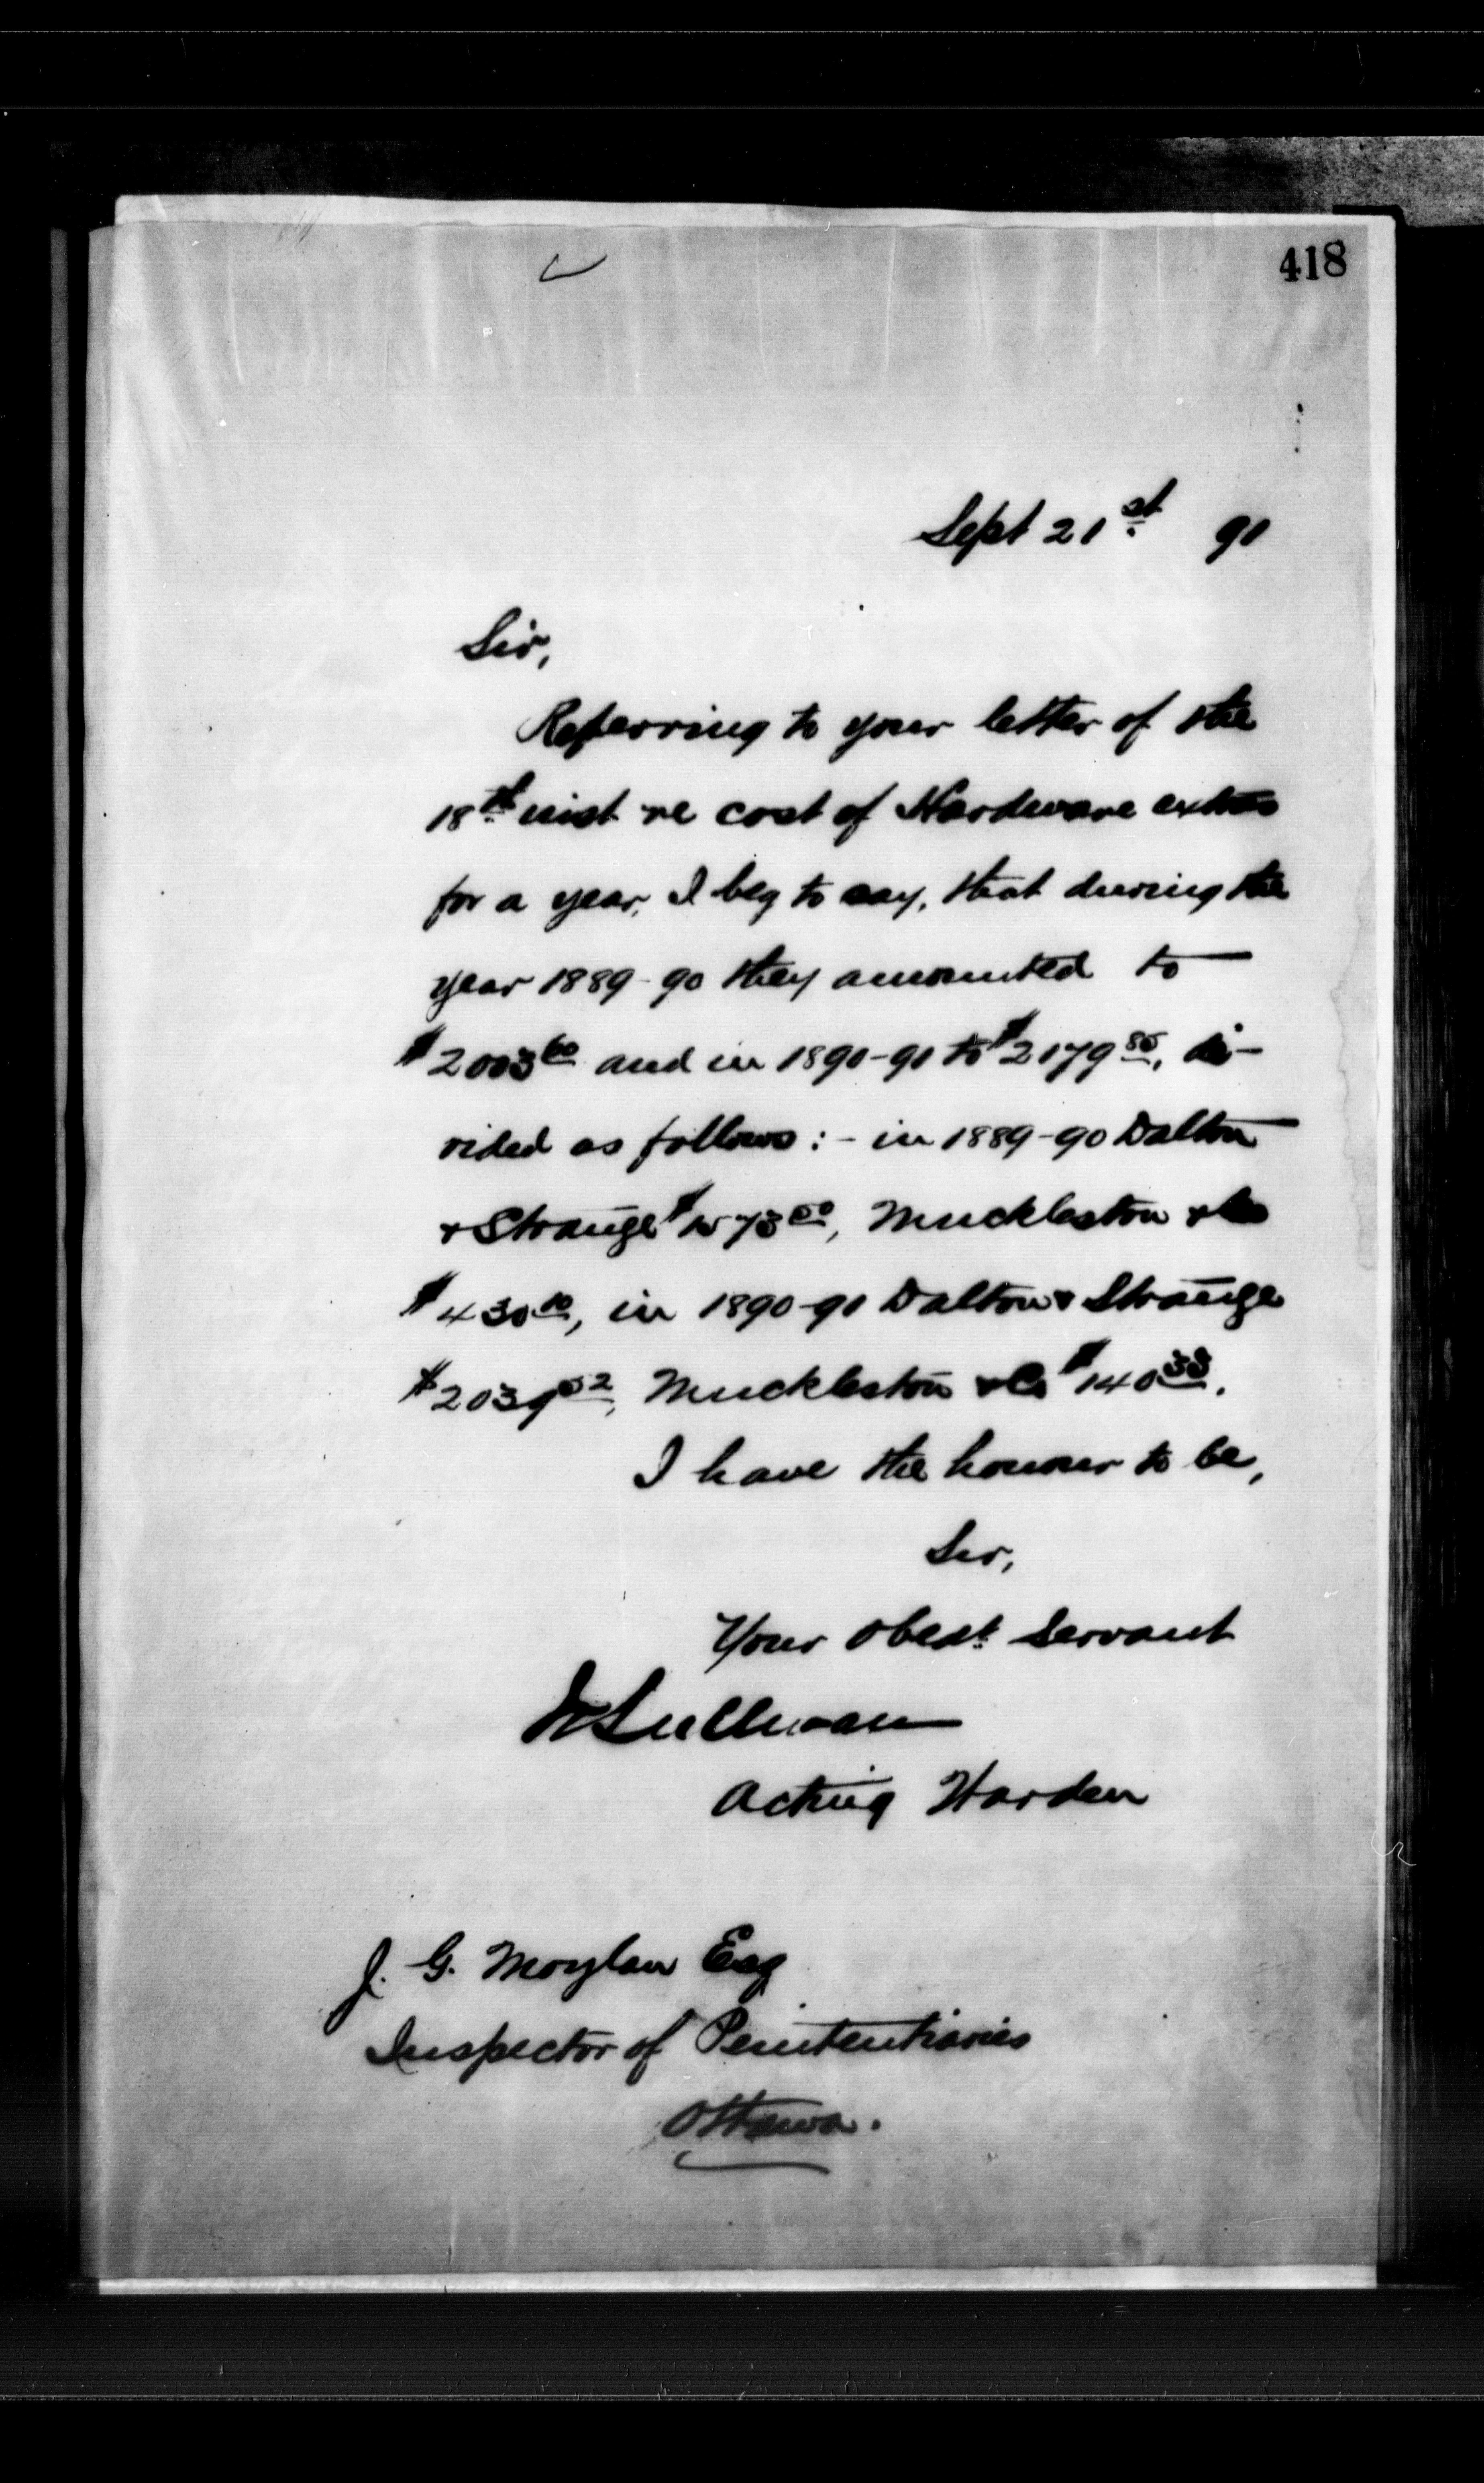 418
Sept 21st 91
Sir,
Referring to your letter of the
18th inst re cost of Hardware extras
for a year, I beg to say, that during the
year 1889-90 they amounted to
$2003 60 and in 1890-91 to $2179 85, di-
vided as follows:- in 1889-90 Dalton
& Strange $1573 50, Muckleston & Co
$430 10, in 1890-91 Dalton & Strange
$2039 52, Muckleston & Co $140 33.
I have the honour to be,
Sir,
Your obedt. Servant
Sullivan
Acting Warden
J. G. Moylan Esq
Inspector of Penitentiaries
Ottawa.